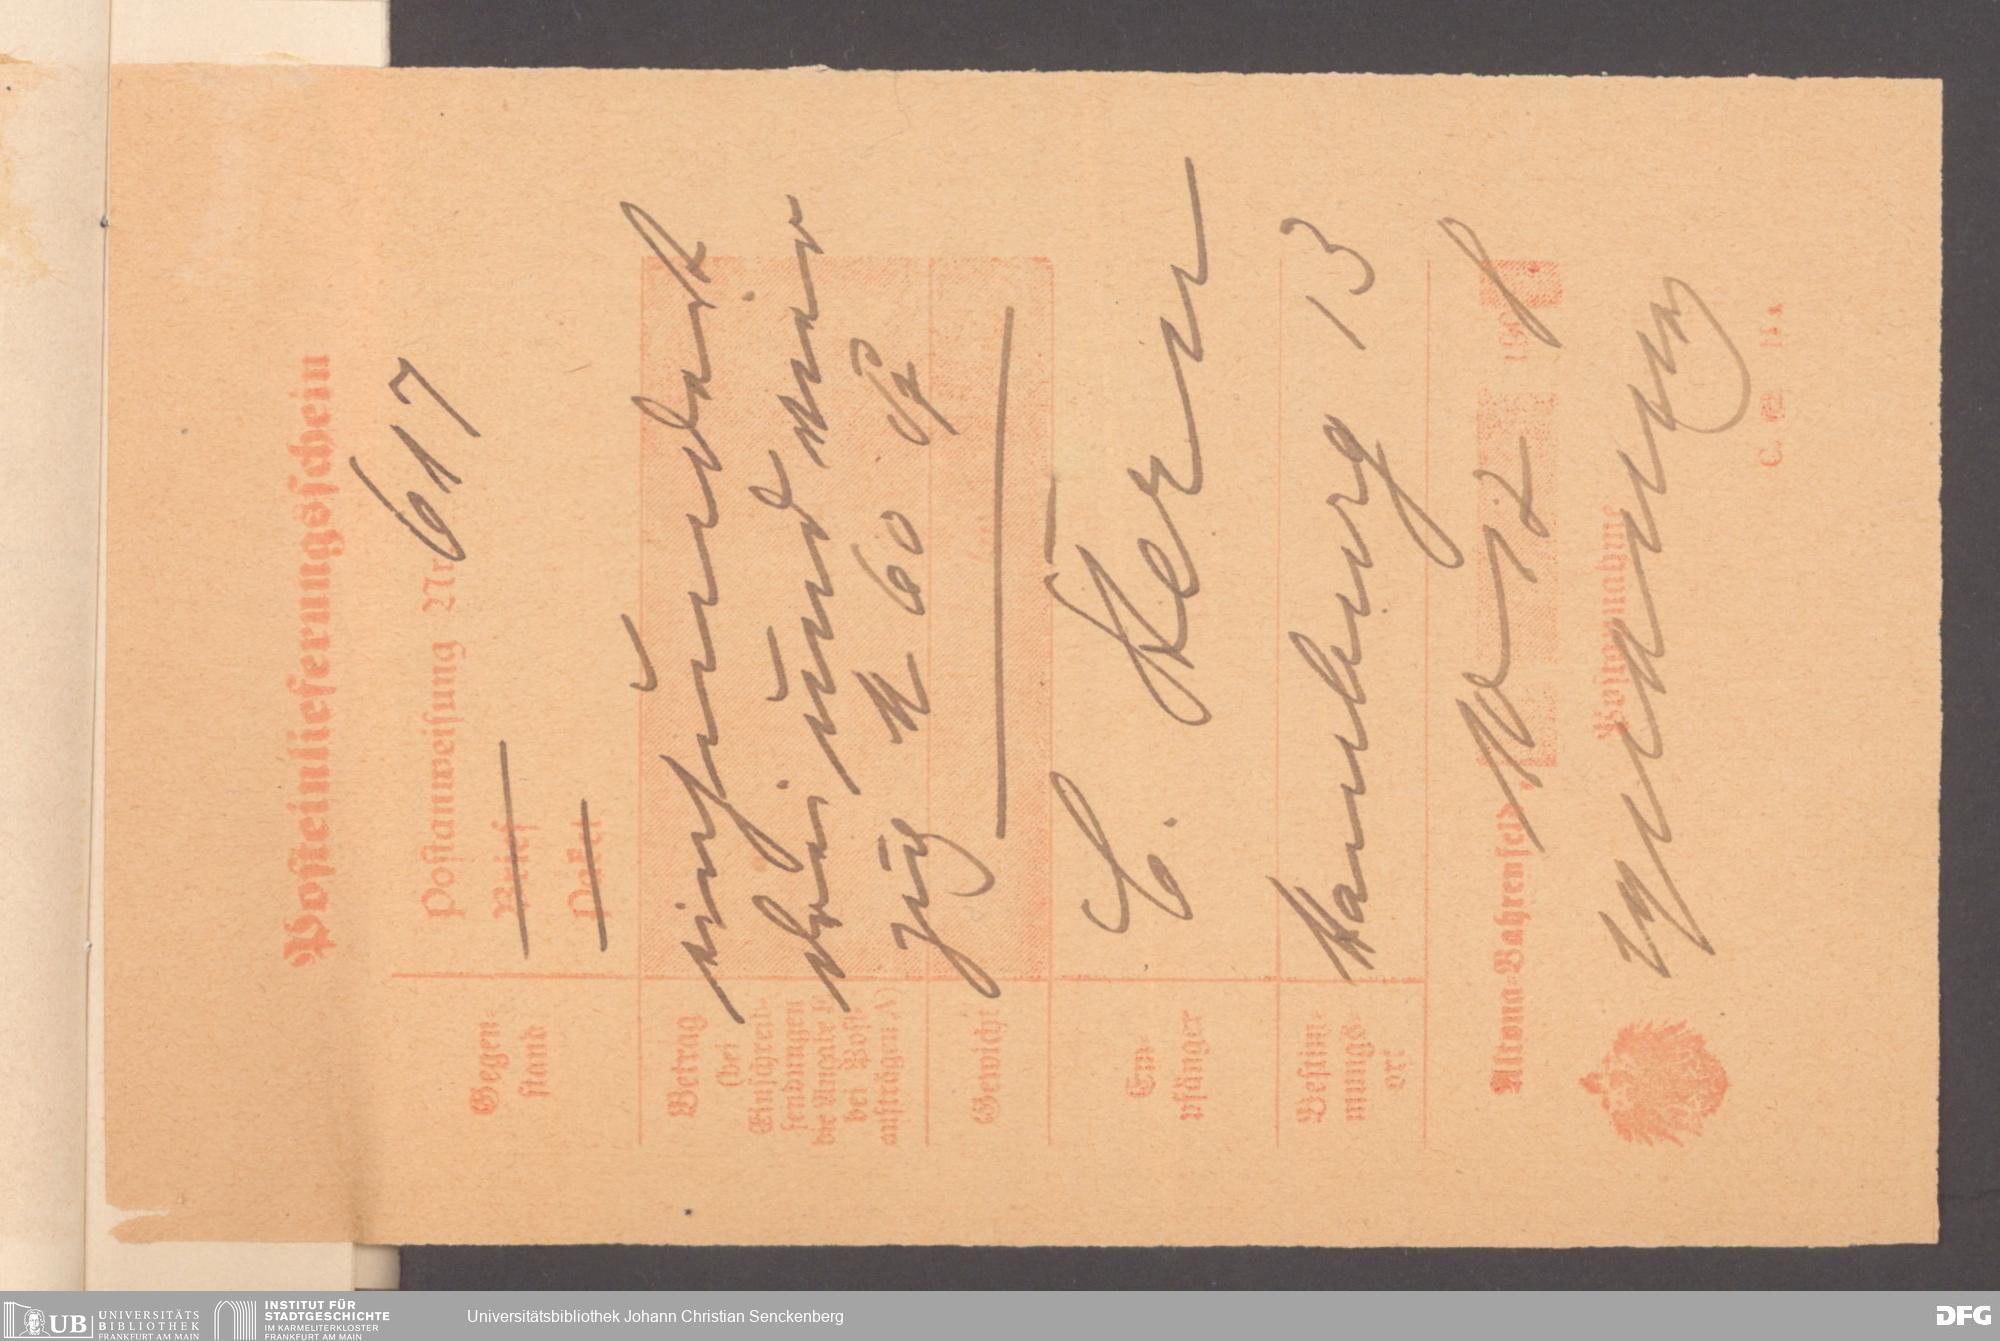 Posteinlieferungsschein
Gegen-
stand
Postanweisung Nr 617
Brief
Paket
Betrag
(bei
Einschreib-
sendungen
die Angabe E
bei Post-
aufträgen A)
einhundert
drei und vier
zig M 60 Pf
Gewicht
Em-
pfänger
C. Kern
Bestim-
mungs-
ort
Hamburg 13
Altona-Bahrenfeld, 12 190
Postannahme
C. 62 15a
UB UNIVERSITÄTS
BIBLIOTHEK
FRANKFURT AM MAIN
INSTITUT FÜR
STADTGESCHICHTE
IM KARMELITERKLOSTER
FRANKFURT AM MAIN
Universitätsbibliothek Johann Christian Senckenberg
DFG